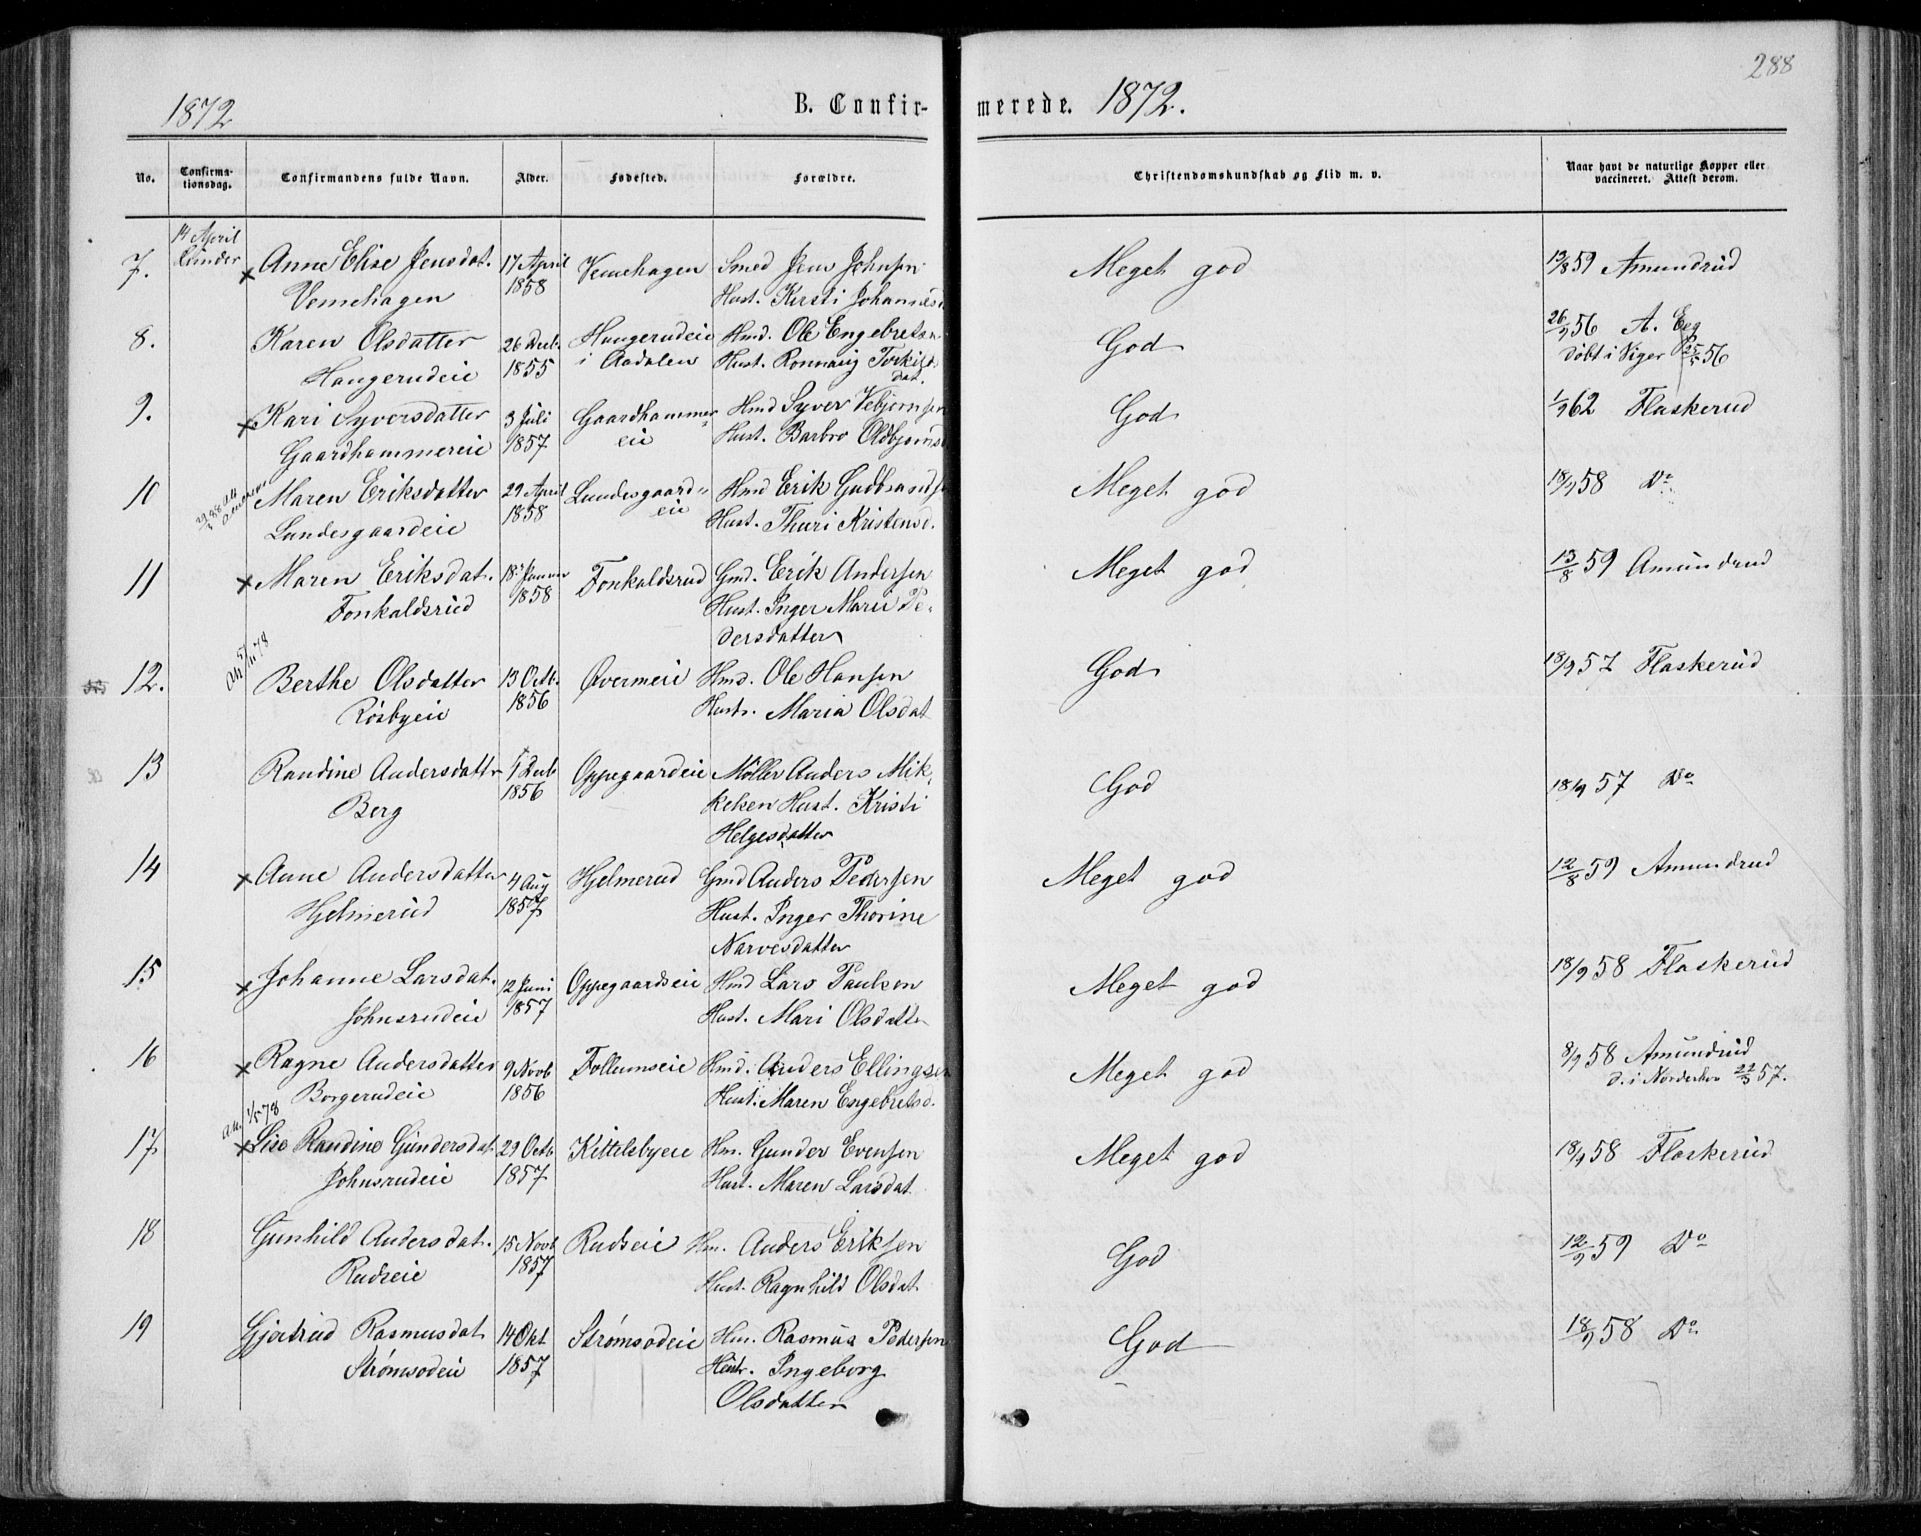 288
1872
B. Confir-
merede. 1872.
No.
Confirma-
tionsdag.
Confirmandens fulde Navn.
Alder.
Fødested.
Forældre.
Christendomskundskab og Flid m. v.
Naar havt de naturlige Kopper eller
vaccineret. Attest derom.
14 April
Lunder
7. × Anne Elise Jensdat. 17 April Vemehagen Smed Jens Johnsen Meget god 13/8 59 Amundrud
Vemehagen 1858 Hust. Kirsti Johannesd
8. Karen Olsdatter 26 Decb. Haugerudeie Hmd. Ole Engebretsn God 26/9 56 A. Eeg
Haugerudeie 1855 i Aadalen Hust. Ronnaug Torkilds
dat.
døbt i Viger 25/5 56
9. × Kari Syversdatter 3 Juli Gaardhammer Hmd Syver Vebjørnsen God 1/9 62 Flaskerud
Gaardhammereie 1857 eie Hust. Barbro Oldbjørnsd
10 Maren Eriksdatter 29 April Lundesgaard- Hmd Erik Gudbrandse Meget god 18/9 58 Do
Lundesgaardeie 1858 eie Hust. Thuri Kristensd.
11 × Maren Eriksdat. 18 Januar Fonkaldsrud Gmd. Erik Andersen Meget god 13/8 59 Amundrud
Fonkaldsrud 1858 Hust. Inger Marie Pe-
dersdatter
Att 5/11 78
12. Berthe Olsdatter 13 Octb. Øvermeie Hmd. Ole Hansen God 18/9 57 Flaskerud
Røsbyeie 1856 Hustr. Maria Olsdat
13 Randine Andersdatter 1 Decb Oppegaardeie Møller Anders Mik- God 18/9 57 Do
Berg 1856 kelsen Hust. Kristi
Helgesdatter
14 × Anne Andersdatter 4 Aug Hjelmerud Gmd Anders Pedersen Meget god 12/8 59 Amundrud
Hjelmerud 1857 Hust. Inger Thorine
Narvesdatter
15 × Johanne Larsdat. 12 Juni Oppegaardseie Hmd Lars Paulsen Meget god 18/9 58 Flaskerud
Johnsrudeie 1857 Hust. Mari Olsdatter
16 × Ragne Andersdatter 9 Novb Follumseie Hmd. Anders Ellingsen Meget god 8/9 58 Amundrud
Borgerudeie 1856 Hust. Maren Engebretsd. d. i Norderhov 22/3 57.
Att. 1/5 78
17 × Lise Randine Gundersdat. 29 Octb Kittelsbyeie Hm. Gunder Evensen Meget god 18/9 58 Flaskerud
Johnsrudeie 1857 Hust. Maren Larsdat.
18 Gunhild Andersdat. 15 Novb Rudseie Hm. Anders Eriksen God 12/9 59 Do
Rudseie 1857 Hust. Ragnhild Olsdat.
19 Gjertrud Rasmusdat 14 Okt Strømsodeie Hm. Rasmus Pedersen God 18/9 58 Do
Strømsodeie 1857 Hustr. Ingeborg
Olsdatter